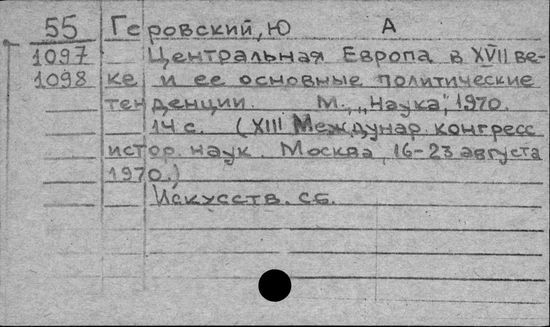 55 Геровский, Ю А
1097 Центральная Европа в XVII ве-
1098 ке и ее основные политические
тенденции. М., "Наука", 1970.
14 с. (XIII Междунар. конгресс
истор. наук. Москва, 16-23 августа
1970.)
Искусств. сб.